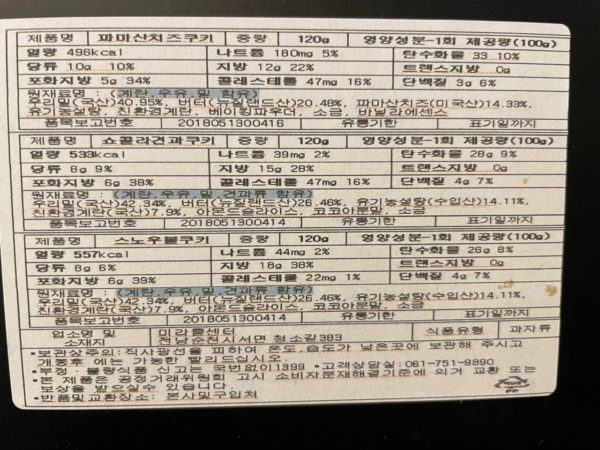 제품명 파마산치즈쿠키 중량 120g 영양성분-1회 제공량(100g)
열량 496kcal 나트륨 180mg 5% 탄수화물 33 10%
당류 10g 10% 지방 12g 22% 트랜스지방 0g
포화지방 5g 34% 콜레스테롤 47mg 16% 단백질 3g 6%
원재료명 : (계란, 우유, 밀 함유)
우리밀(국산)40.95%, 버터(뉴질랜드산)20.48%, 파마산치즈(미국산)14.33%,
유기농설탕, 친환경계란, 베이킹파우더, 소금, 바닐라에센스
품목보고번호 2018051300416 유통기한 표기일까지
제품명 쇼콜라견과쿠키 중량 120g 영양성분-1회 제공량(100g)
열량 533kcal 나트륨 39mg 2% 탄수화물 28g 9%
당류 8g 9% 지방 15g 28% 트랜스지방 0g
포화지방 6g 38% 콜레스테롤 47mg 16% 단백질 4g 7%
원재료명 : (계란, 우유, 밀, 견과류 함유)
우리밀(국산)42.34%, 버터(뉴질랜드산)26.46%, 유기농설탕(수입산)14.11%,
친환경계란(국산)7.9%, 아몬드슬라이스, 코코아분말, 소금
품목보고번호 2018051300414 유통기한 표기일까지
제품명 스노우볼쿠키 중량 120g 영양성분-1회 제공량(100g)
열량 557kcal 나트륨 44mg 2% 탄수화물 26g 8%
당류 8g 6% 지방 18g 38% 트랜스지방 0g
포화지방 6g 39% 콜레스테롤 22mg 1% 단백질 4g 7%
원재료명 : (계란, 우유, 밀, 견과류 함유)
우리밀(국산)42.34%, 버터(뉴질랜드산)26.46%, 유기농설탕(수입산)14.11%,
친환경계란(국산)7.9%, 아몬드슬라이스, 코코아분말, 소금
품목보고번호 2018051300414 유통기한 표기일까지
업소명 및 소재지 미라클센터 식품유형 과자류
전남순천시서면 청소길383
•보관상주의:직사광선을 피하여 온도,습도가 낮은곳에 보관해 주시고
개봉후 에는 가능한 빨리드십시오.
•부정·불량식품 신고는 국번없이1399 •고객상담실:061-751-9890
•본 제품은 공정거래위원회 고시 소비자분쟁해결기준에 의거 교환 또는
보상을 받으실수 있습니다.
•반품및교환장소: 본사및구입처